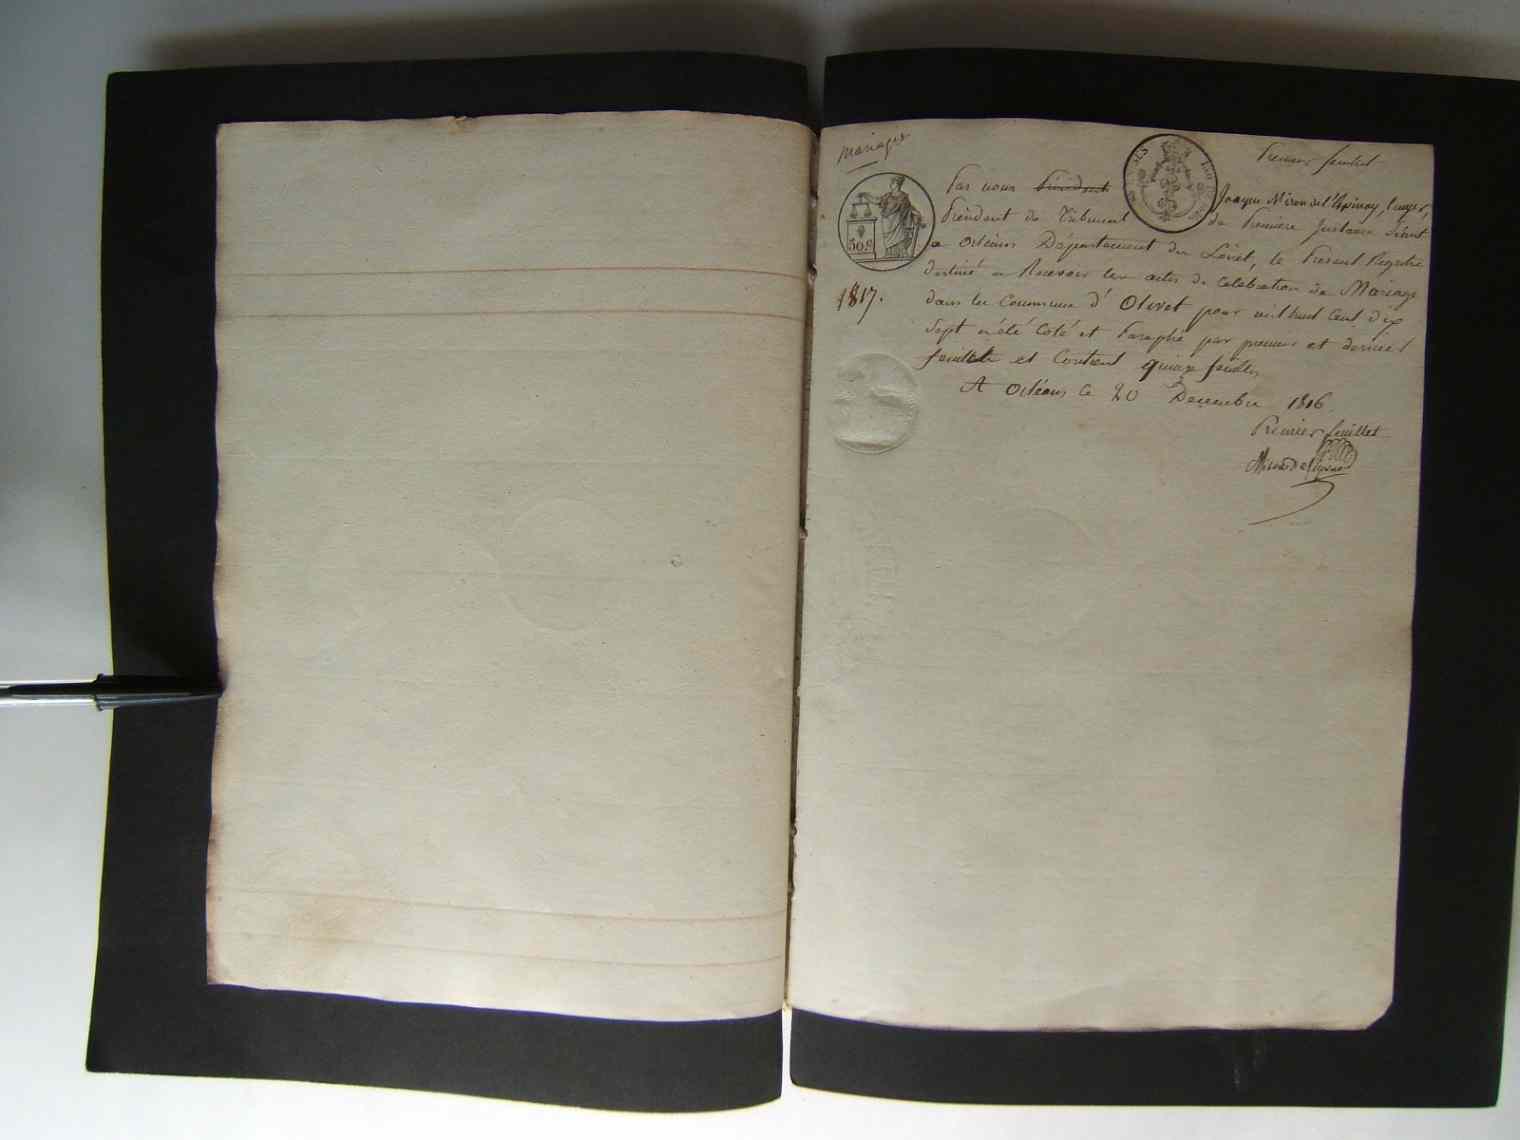 Mariages
Premier feuillet
Par nous Président Jacques Miron de l'Epinay, Ecuyer,
Président du Tribunal de Premiere Instance séant
a Orléans Département du Loiret, le Present Registre
destiné a Recevoir les actes de Celebration de Mariage
dans la Commune d'Olivet pour mil huit Cent dix
Sept a été Coté et Paraphé par premier et dernier
feuillet et Contient quinze feuillets
A Orléans le 20 Decembre 1816
Premier feuillet
Miron de l'Epinay
50 c
1817.